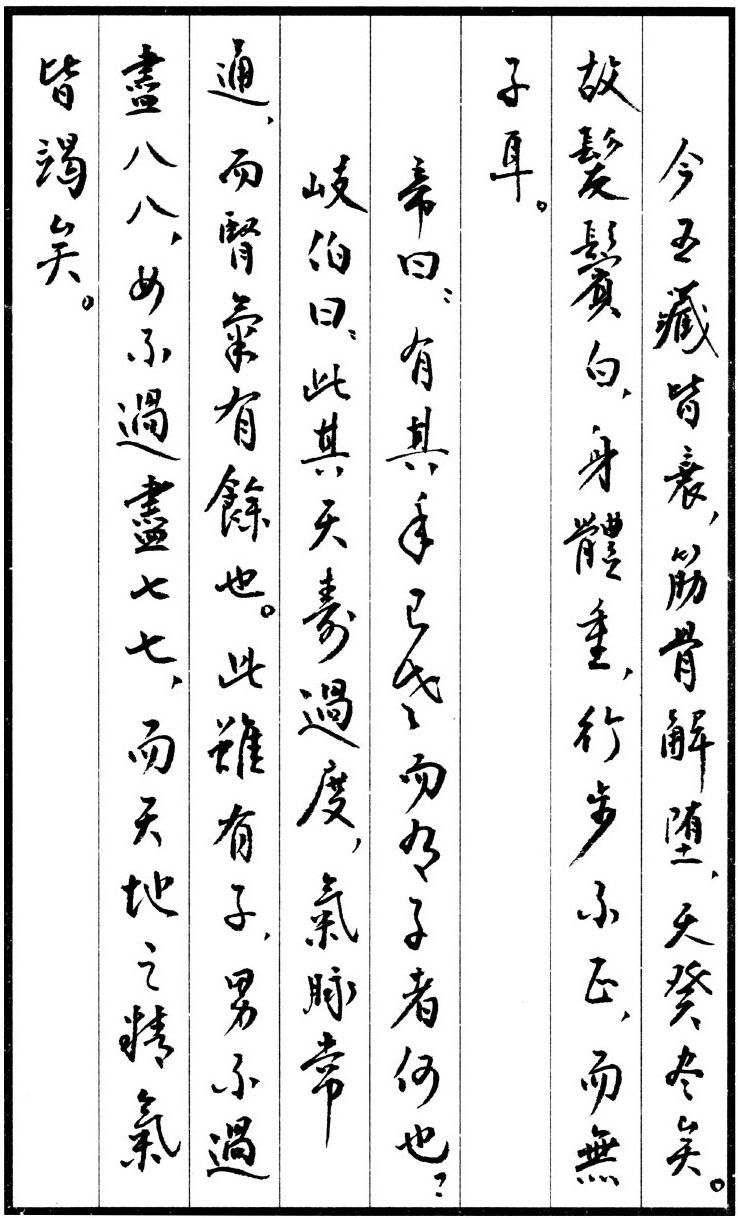 今五藏皆衰，筋骨解堕，天癸尽矣。
故髮鬢白，身體重，行步不正，而無
子耳。
帝曰：有其年已老而有子者何也？
岐伯曰：此其天壽過度，氣脉常
通，而腎氣有餘也。此雖有子，男不過
盡八八，女不過盡七七，而天地之精氣
皆竭矣。